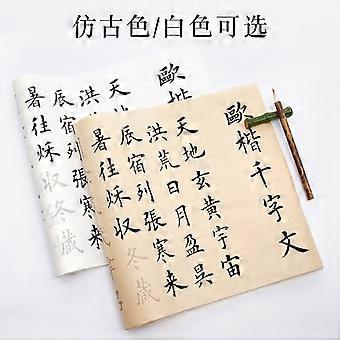 仿古色/白色可选
歐楷
天地
洪荒
辰宿列張寒来
暑往秋収冬藏
歐楷千字文
天地玄黃宇宙
洪荒日月盈昃
辰宿列張寒来
暑往秋収冬藏